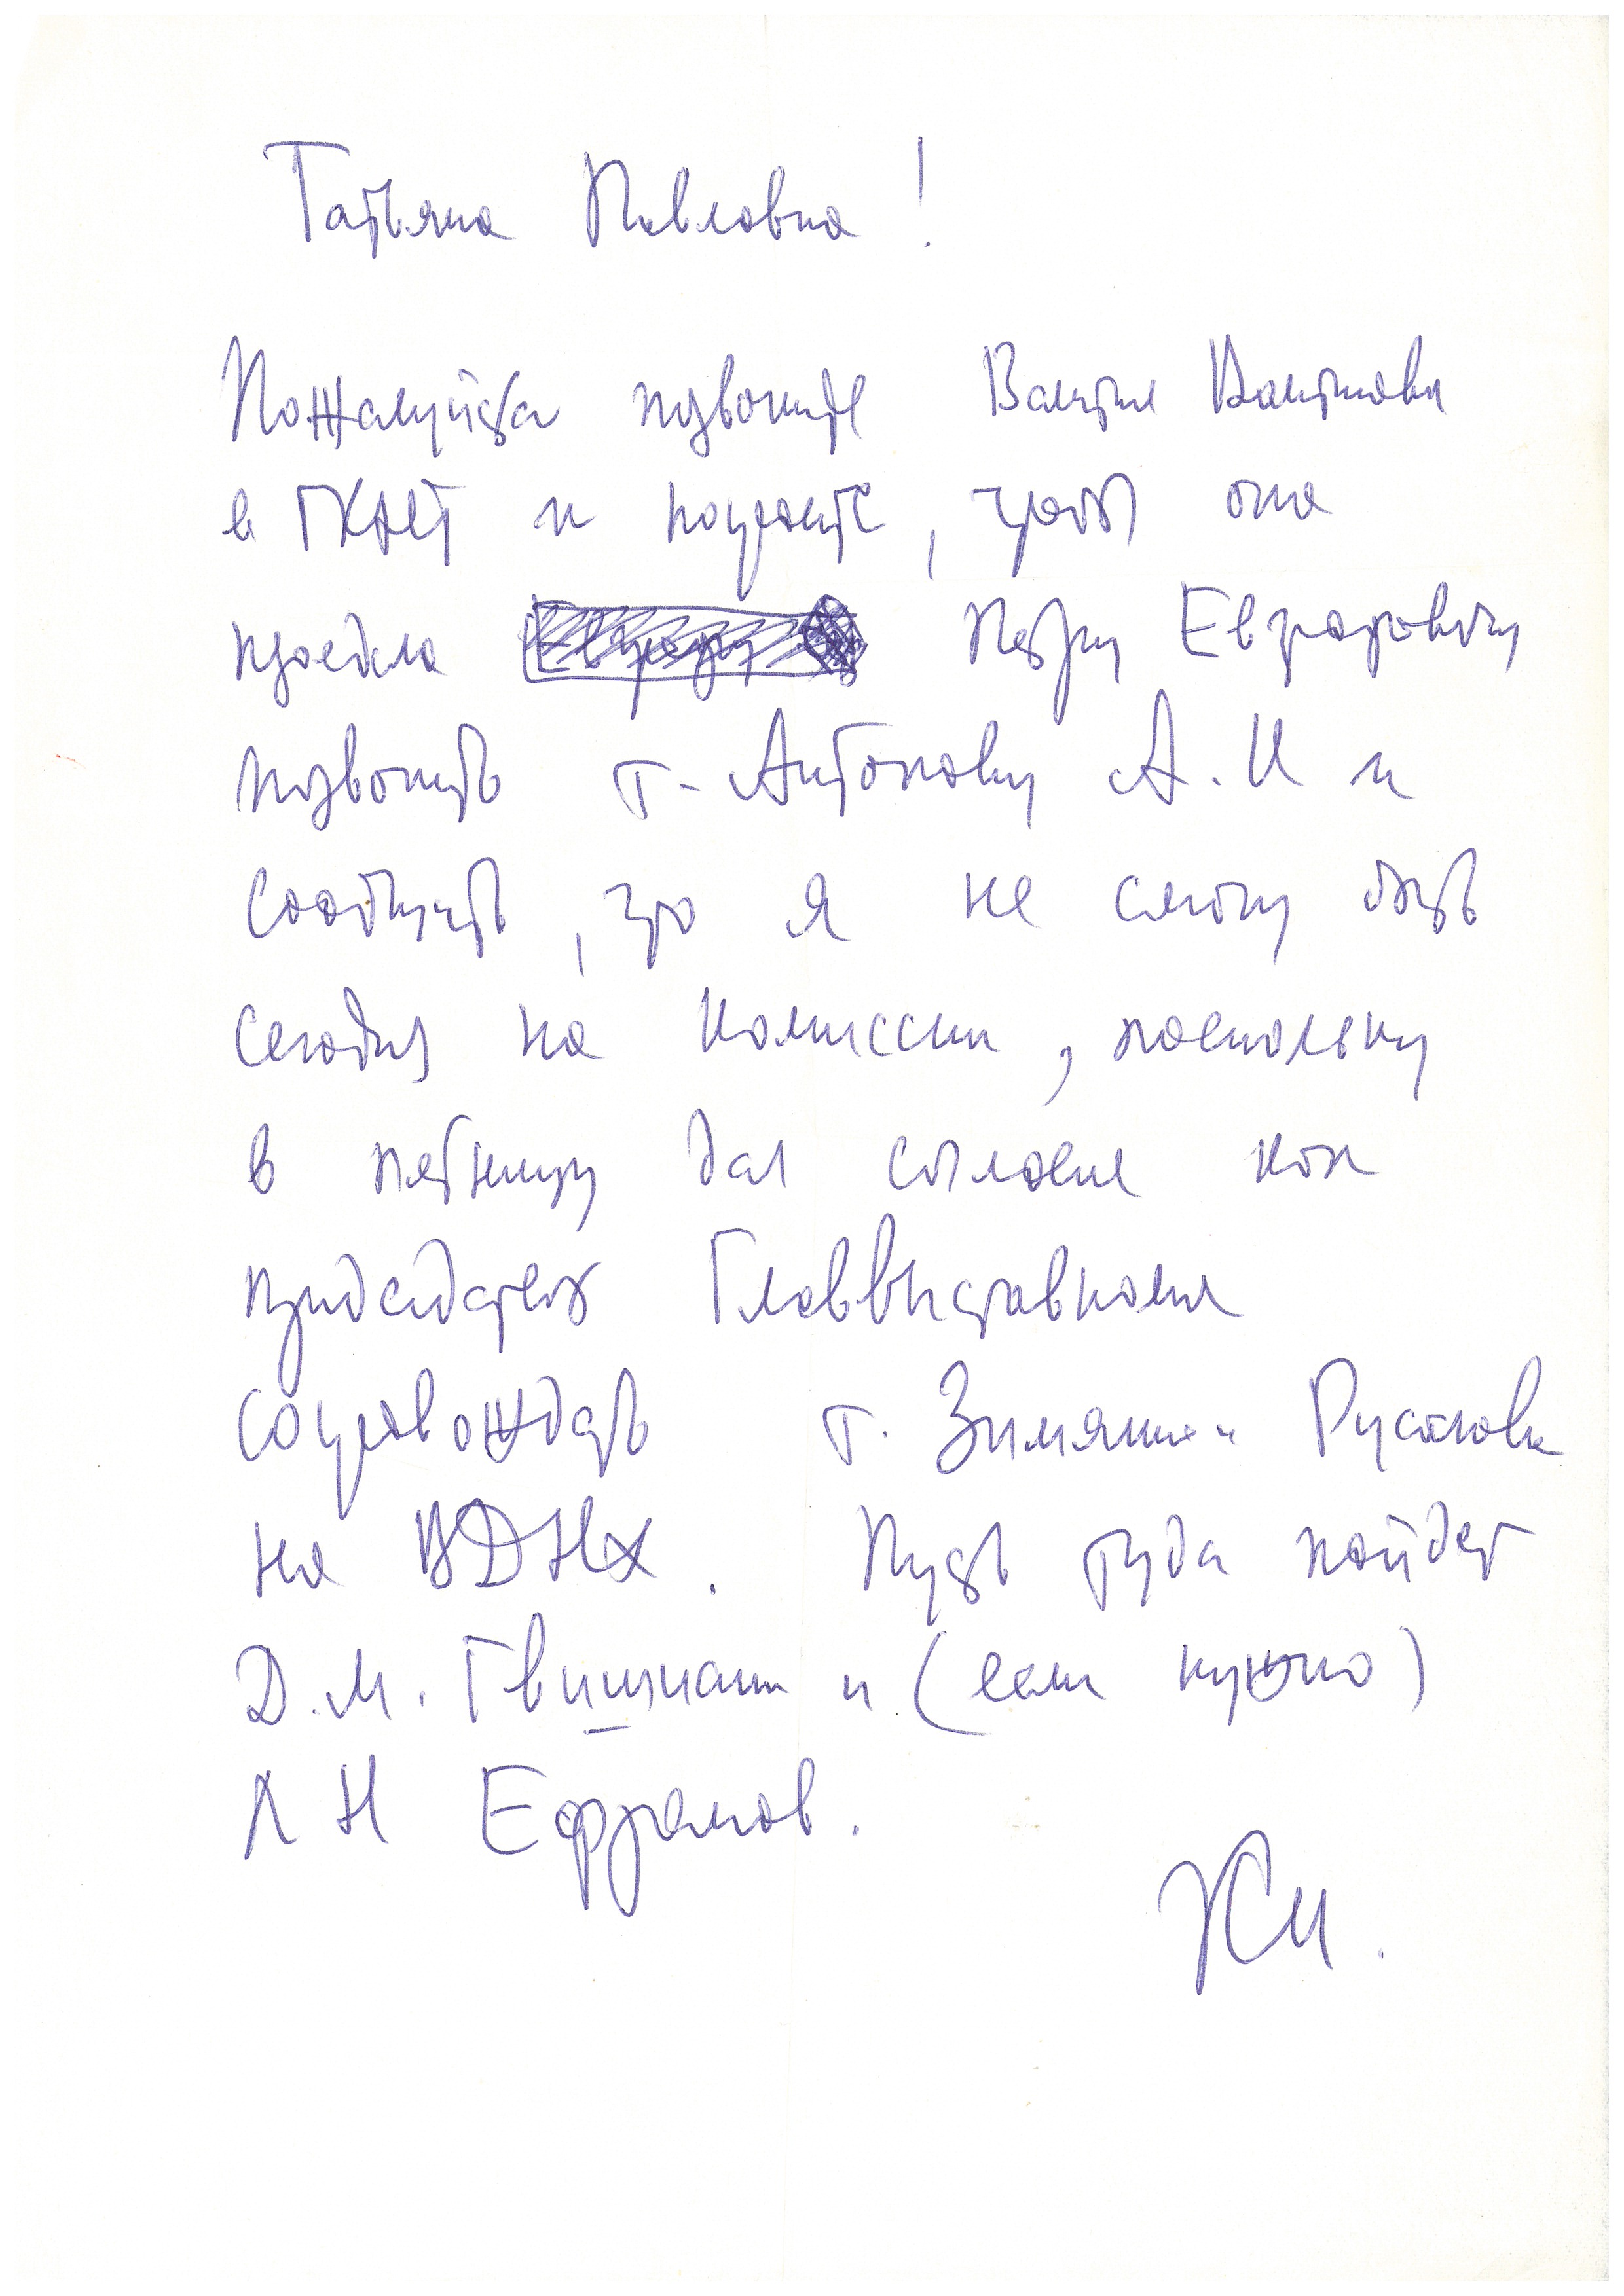 Татьяна Павловна!
Пожалуйста позвоните
в ГКНТ и попросите, чтобы она
просила Петру Евграфовичу
позвонить т. Антонову А.К и
сообщить, что я не смогу быть
сегодня на комиссии, поскольку
в пятницу дал согласие как
председатель Главвыставкома
сопровождать т. Зимянина Русакова
на ВДНХ. Пусть туда пойдет
Д.М. Гвишиани и (если нужно)
Л Н Ефремов.